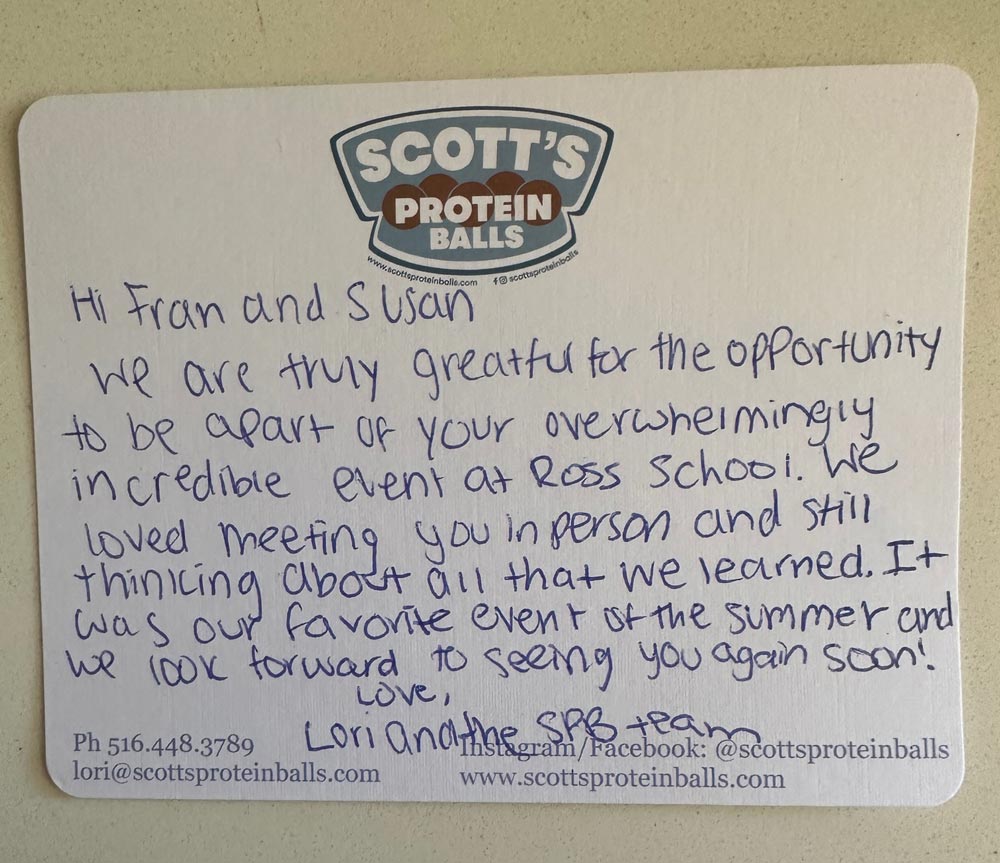 SCOTT'S
PROTEIN
BALLS
www.scottsproteinballs.com scottsproteinballs
Hi Fran and Susan
We are truly greatful for the opportunity
to be apart of your overwhelmingly
incredible event at Ross School. We
loved meeting you in person and still
thinking about all that we learned. It
was our favorite event of the summer and
we look forward to seeing you again soon!
Love,
Lori and the SPB team
Ph 516.448.3789 Instagram/Facebook: @scottsproteinballs
lori@scottsproteinballs.com www.scottsproteinballs.com